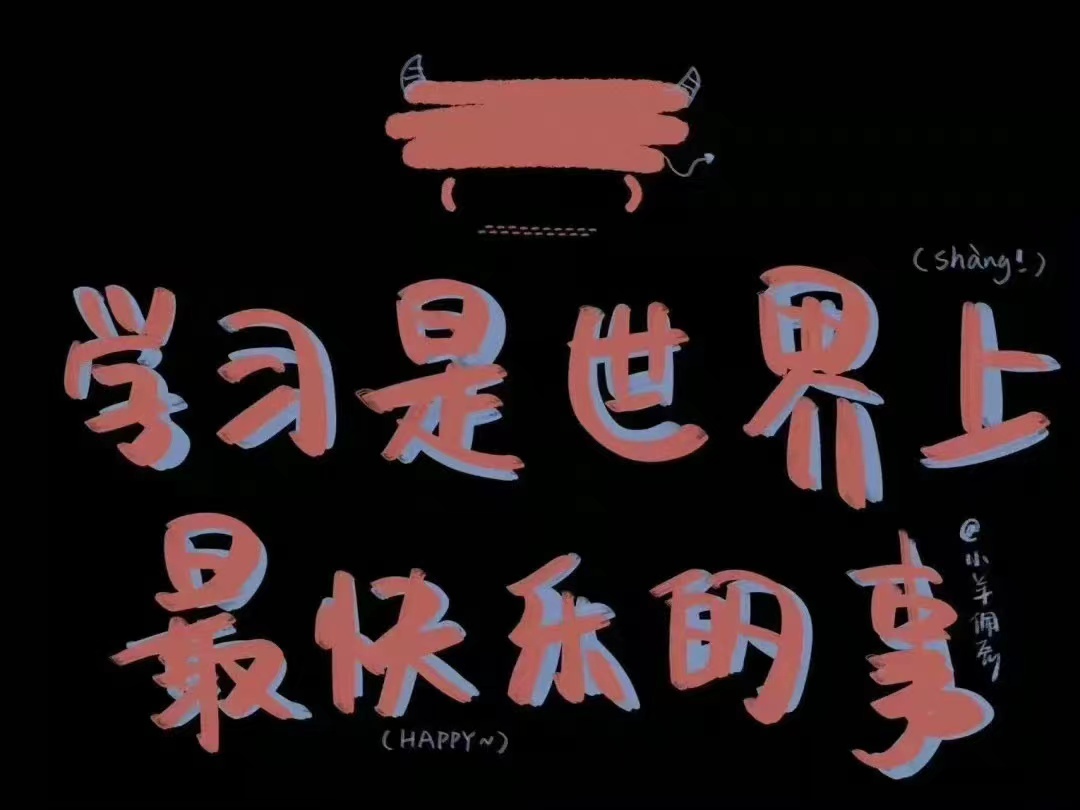 (shàng!)
学习是世界上
最快乐的事
(HAPPY~)
@小羊佩剑